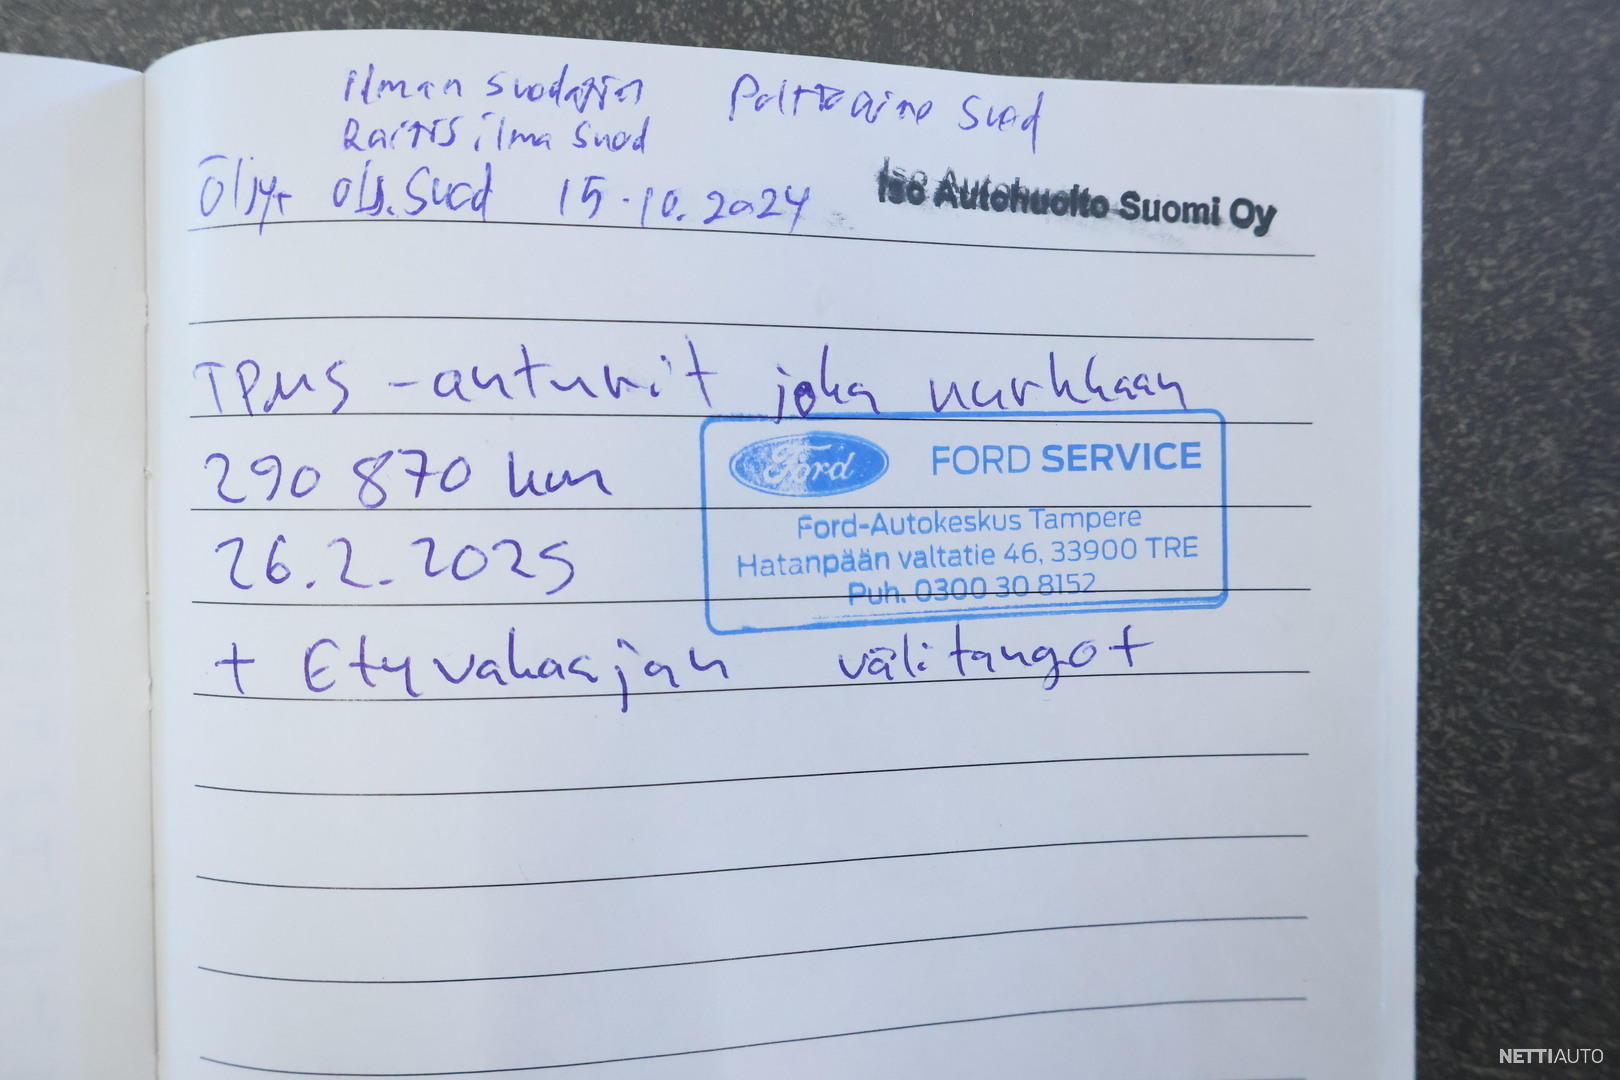 Ilman suodatin Polttoaine Suod
Raitis ilma Suod
Öljyt ölj. Suod 15.10.2024 Iso Autohuolto Suomi Oy
TPMS -anturit joka nurkkaan
290 870 km
26.2.2025
+ Etuvakaajan välitangot
Ford FORD SERVICE
Ford-Autokeskus Tampere
Hatanpään valtatie 46, 33900 TRE
Puh. 0300 30 8152
NETTIAUTO